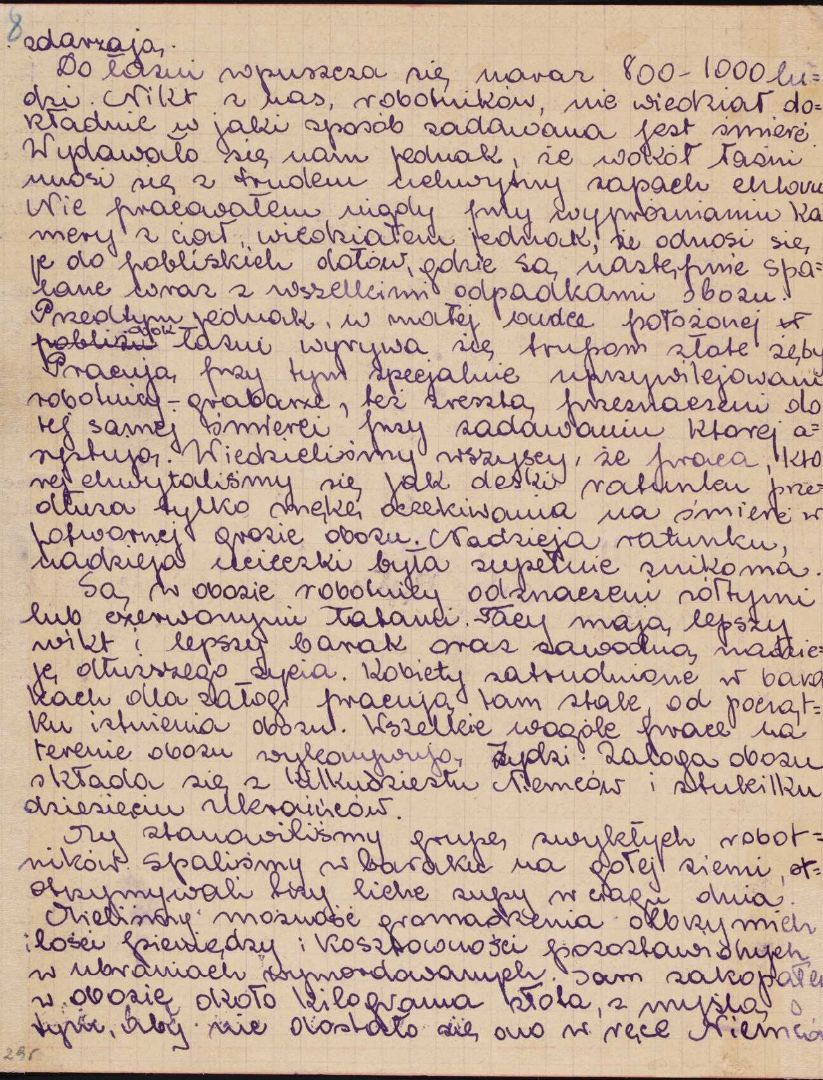 8
zdarzają.
Do łaźni wpuszcza się naraz 800-1000 lu=
dzi. Nikt z nas, robotników, nie wiedział do=
kładnie w jaki sposób zadawana jest śmierć.
Wydawało się nam jednak, że wokół łaźni
unosi się z trudem uchwytny zapach chloru
Nie pracowałem nigdy przy wypróżnianiu ka
mery z ciał, wiedziałem jednak, że odnosi się
je do pobliskich dołów, gdzie są następnie spa=
lane wraz z wszelkimi odpadkami obozu.
Przedtym jednak, w małej budce położonej w
pobliżu obok łaźni wyrywa się trupom złote zęby
Pracują przy tym specjalnie uprzywilejowani
robotnicy-grabarze, też zresztą przeznaczeni do
tej samej śmierci przy zadawaniu której a=
systują. Wiedzieliśmy wszyscy, że praca, któ
rej chwytaliśmy się jak deski ratunku prze
dłuża tylko mękę oczekiwania na śmierć w
potwornej grozie obozu. Nadzieja ratunku,
nadzieja ucieczki była zupełnie znikoma.
Są w obozie robotnicy odznaczeni żółtymi
lub czerwonymi łatami. Tacy mają lepszy
wikt i lepszy barak oraz zawodną nadzie=
ję dłuższego życia. Kobiety zatrudnione w bara
kach dla załogi pracują tam stale, od począt=
ku istnienia obozu. Wszelkie wogóle prace na
terenie obozu wykonywują Żydzi. Załoga obozu
składa się z kilkudziestu Niemców i stukilku
dziesięciu Ukraińców.
My stanowiliśmy grupę zwykłych robot=
ników. Spaliśmy w baraku na gołej ziemi, ot=
otrzymywali trzy liche zupy w ciągu dnia.
Mieliśmy możność gromadzenia olbrzymich
ilości pieniędzy i kosztowności pozostawionych
w ubraniach wymordowanych. Sam zakopałem
w obozie około kilograma złota, z myślą o
tym, aby nie dostało się ono w ręce Niemców
29r